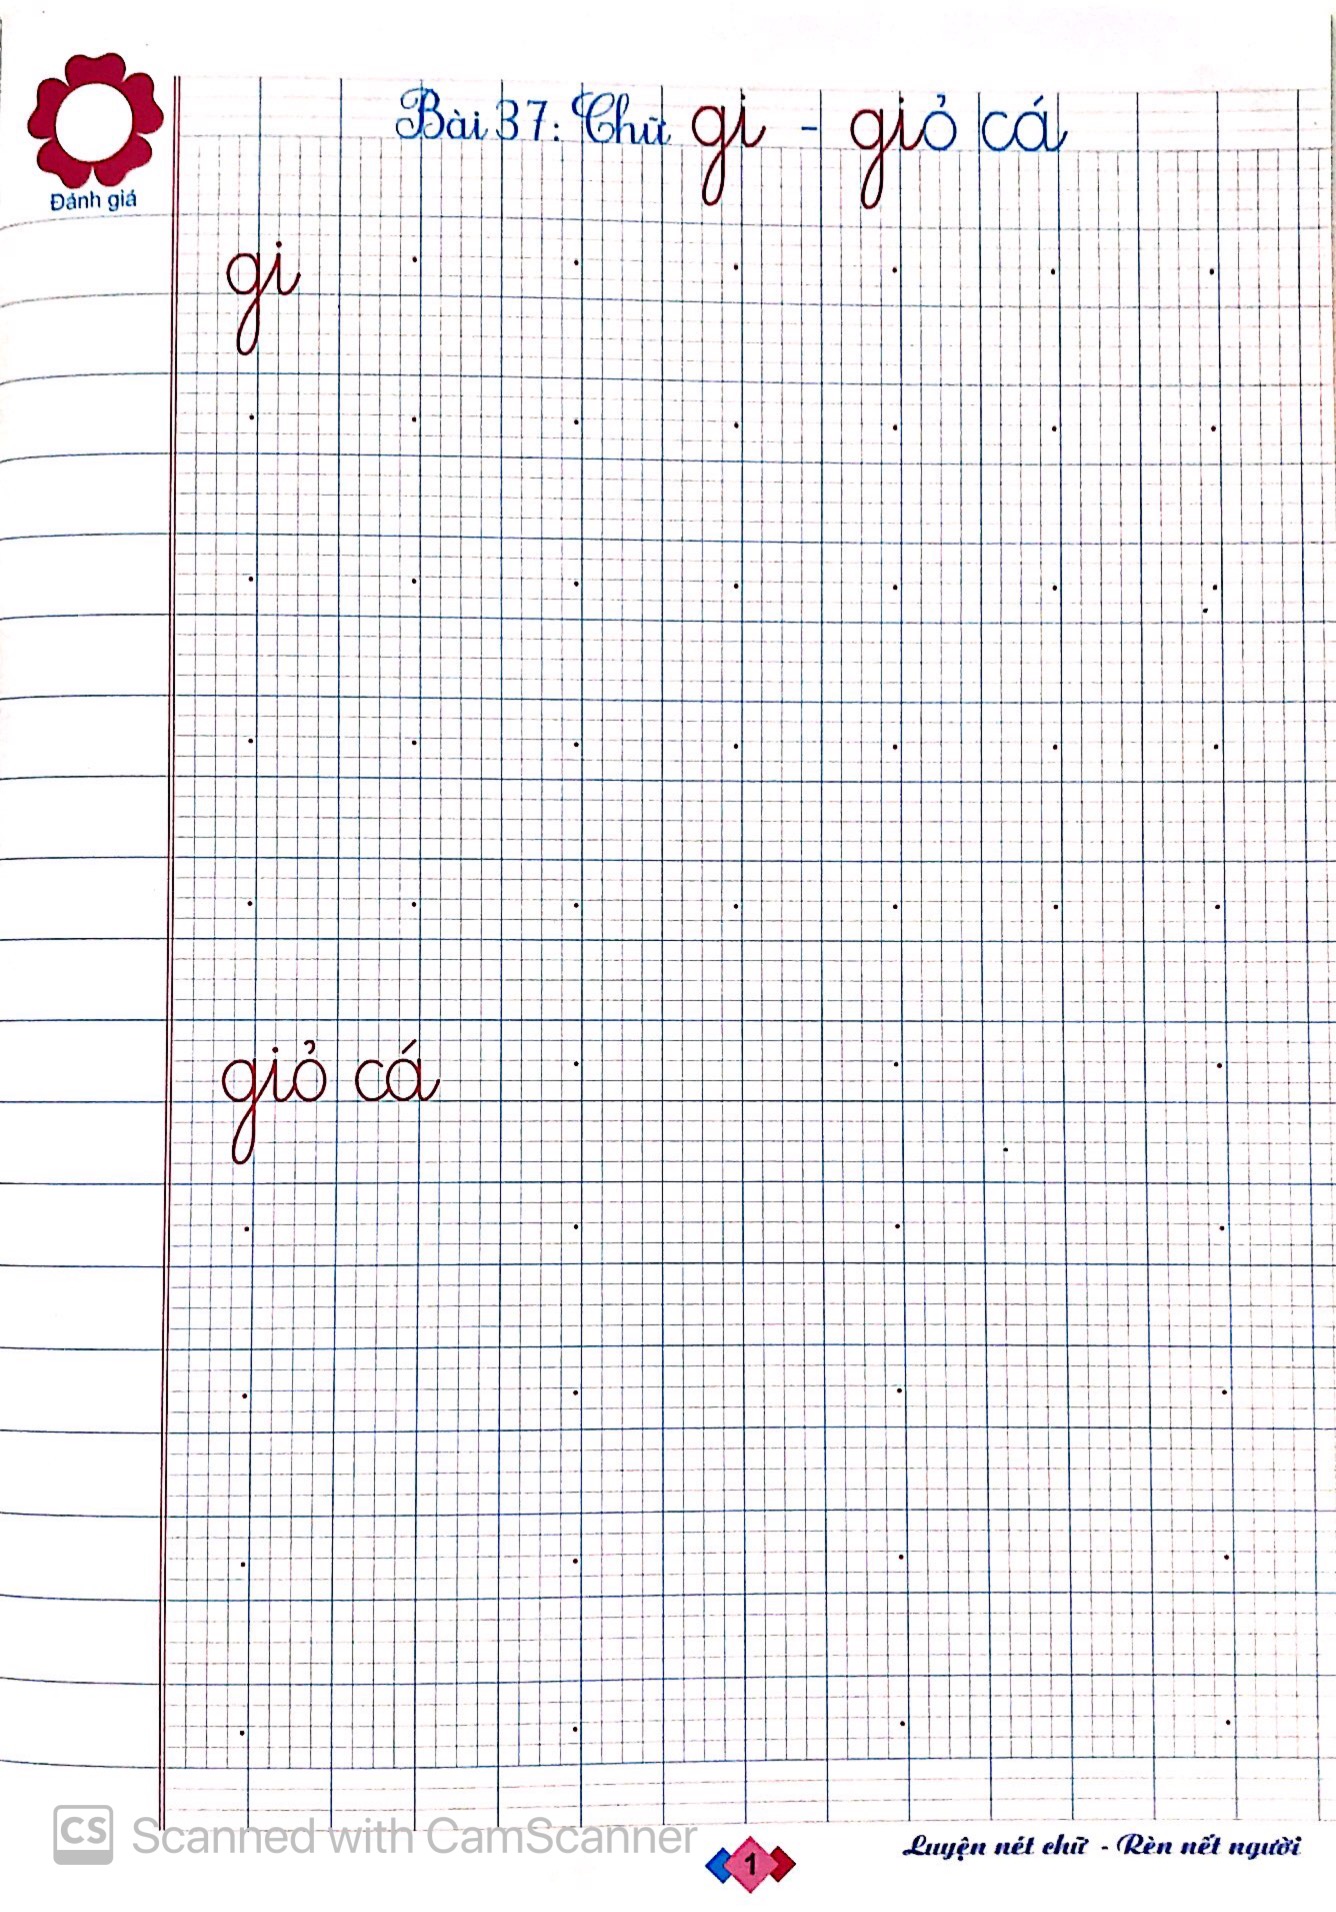 Bài 37: Chữ gi - giỏ cá
Đánh giá
gi
giỏ cá
CS Scanned with CamScanner
1
Luyện nét chữ - Rèn nết người